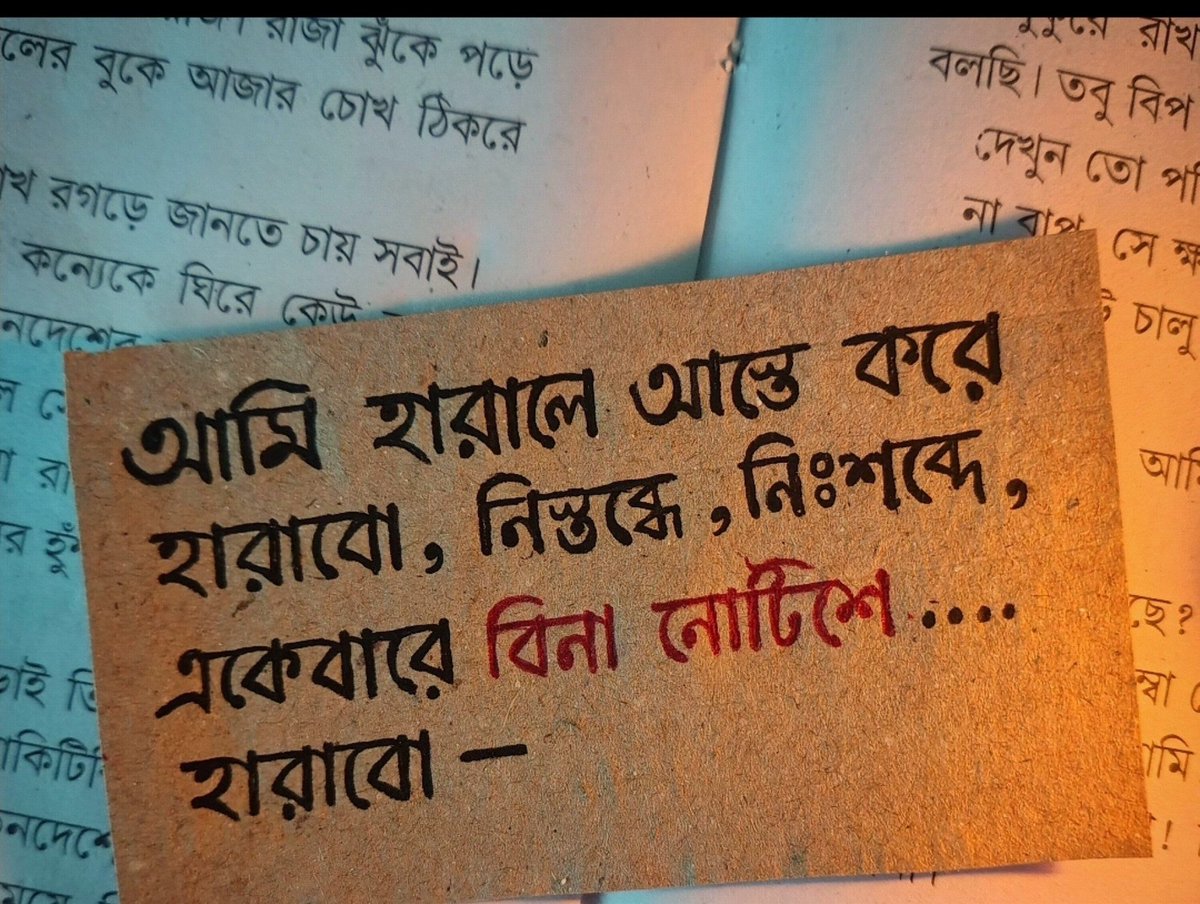 রাজা ঝুঁকে পড়ে
লের বুকে আজার চোখ ঠিকরে
রগড়ে জানতে চায় সবাই।
কন্যেকে ঘিরে কেউ
রাখ
বলছি। তবু বিপ
দেখুন তো
না বাপ সে ক্ষ
চালু
আমি হারালে আস্তে করে
হারাবো, নিস্তব্ধে, নিঃশব্দে,
একেবারে বিনা নোটিশে....
হারাবো –